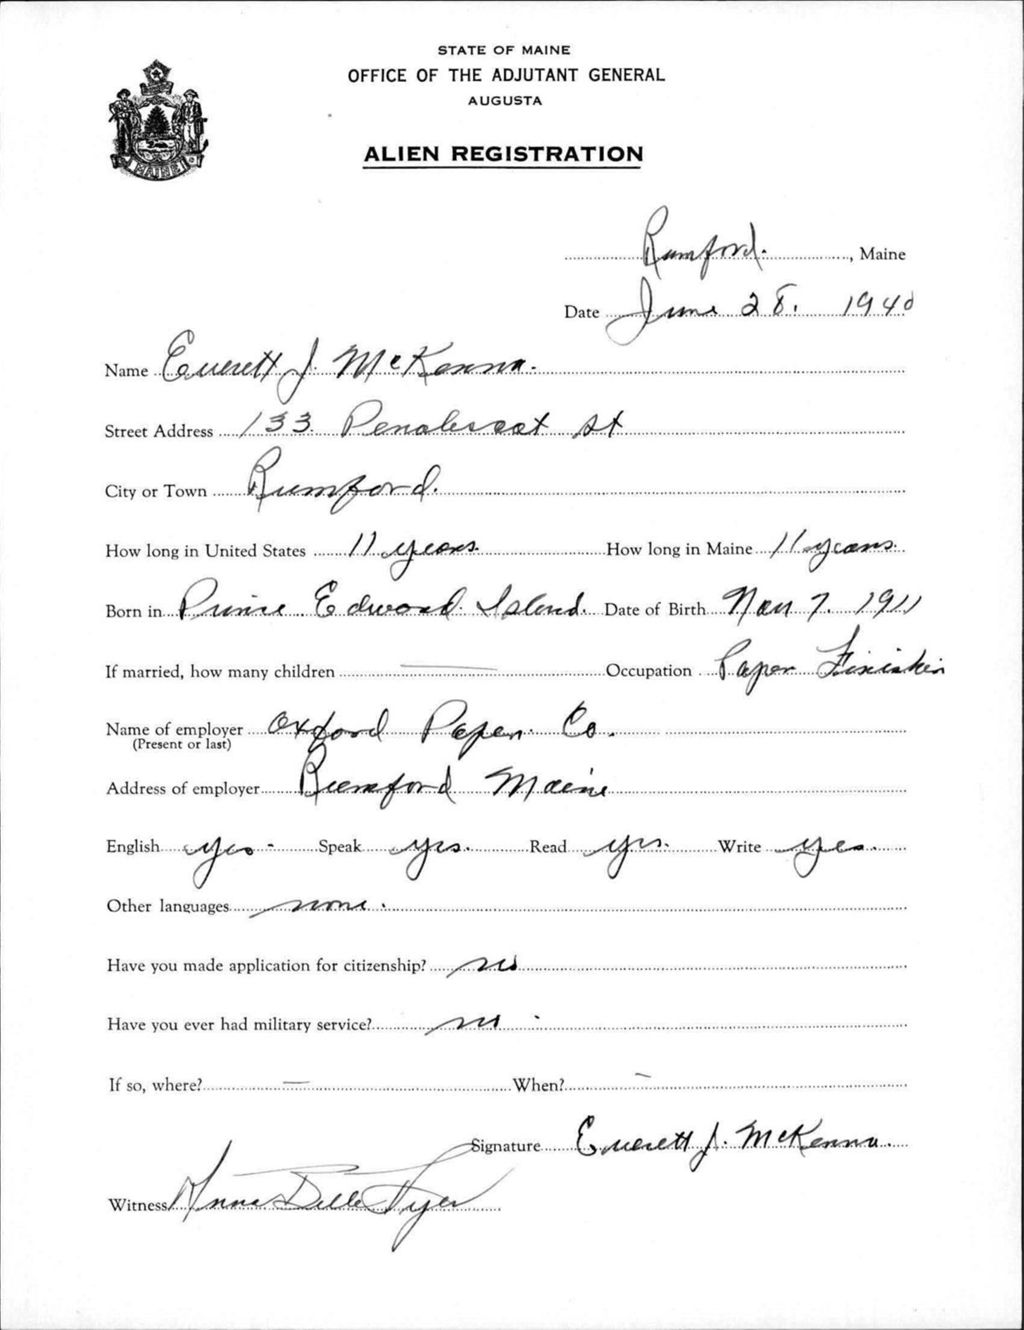 STATE OF MAINE
OFFICE OF THE ADJUTANT GENERAL
AUGUSTA
ALIEN REGISTRATION
MAINE
Rumford. , Maine
Date June 28. 1940
Name Everett J. McKenna.
Street Address 133 Penobscot St
City or Town Rumford.
How long in United States 11 years. How long in Maine 11 years.
Born in Prince Edward Island. Date of Birth 7. 1911
If married, how many children — Occupation Paper Finisher
Name of employer Oxford Paper Co.
(Present or last)
Address of employer Rumford Maine
English yes - Speak yes. Read yes. Write yes.
Other languages none.
Have you made application for citizenship? no
Have you ever had military service? no
If so, where? — When? —
Signature Everett J. McKenna.
Witness Anna Belle Dyer